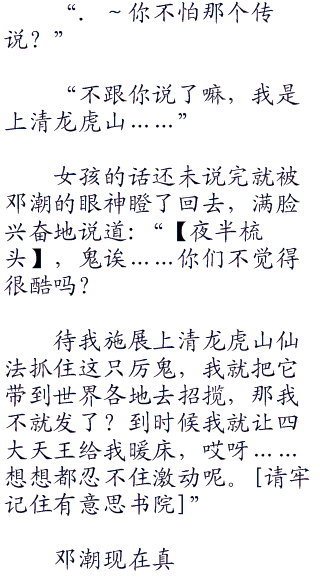 “．～你不怕那个传
说？”
“不跟你说了嘛，我是
上清龙虎山……”
女孩的话还未说完就被
邓潮的眼神瞪了回去，满脸
兴奋地说道：“【夜半梳
头】，鬼诶……你们不觉得
很酷吗？
待我施展上清龙虎山仙
法抓住这只厉鬼，我就把它
带到世界各地去招揽，那我
不就发了？到时候我就让四
大天王给我暖床，哎呀……
想想都忍不住激动呢。[请牢
记住有意思书院]”
邓潮现在真